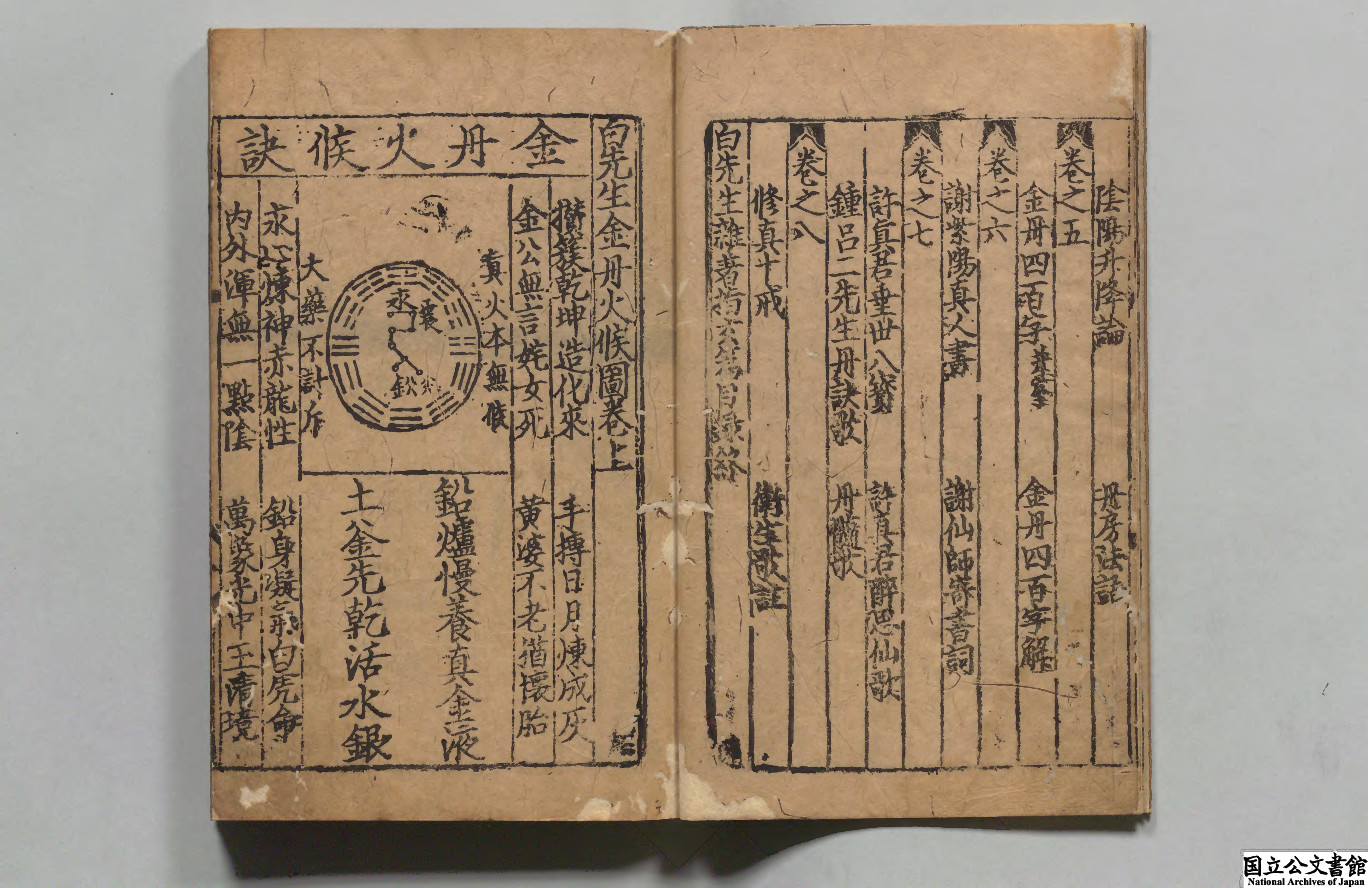 陰陽升降論 丹房法語
卷之五
金丹四百字 金丹四百字解
卷之六
謝紫陽真人書 謝仙師寄書詞
卷之七
許真君垂世八寶 許真君醉思仙歌
鍾呂二先生丹訣歌 丹髓歌
卷之八
修真十戒 衛生歌註
白先生雜著指玄篇目錄終
白先生金丹火候圖卷上
金丹火候訣
攢簇乾坤造化來 手摶日月煉成灰
金公無言姹女死 黃婆不老猶懷胎
真火本無候
汞
鈆
大藥不計斤
鉛爐慢養真金液
土釜先乾活水銀
汞心煉神赤龍性 鉛身凝氣白虎命
內外渾無一點陰 萬象光中玉清境
国立公文書館
National Archives of Japan